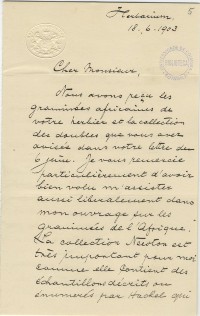 Herbarium.
18.6.1903
5
Cher Monsieur,
Nous avons reçu les
graminées africaines de
votre herbier et la collection
des doubles que vous avez
avisés dans votre lettre du
6 juin. Je vous remercie
particulièrement d'avoir
bien voulu m'assister
aussi liberalement dans
mon ouvrage sur les
graminées de l'Afrique.
La collection Newton est
très important pour moi
comme elle contient des
échantillons décrits ou
enumerés par Hackel qui